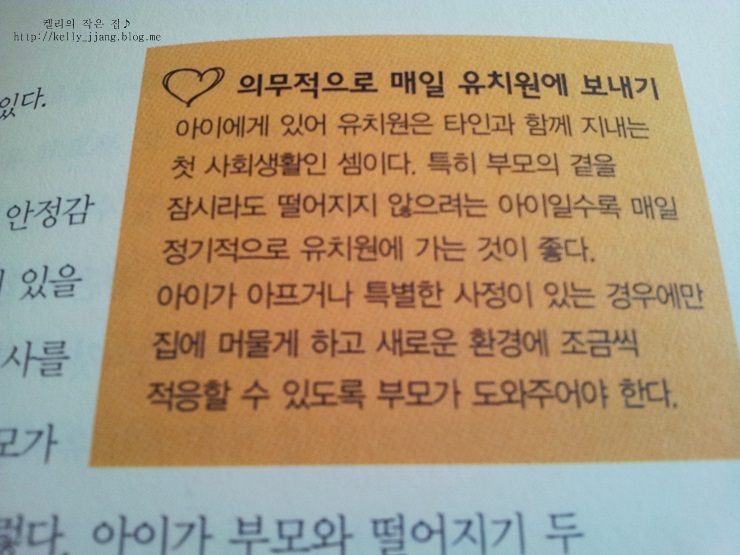 켈리의 작은 집♪
http://kelly_jjang.blog.me
의무적으로 매일 유치원에 보내기
아이에게 있어 유치원은 타인과 함께 지내는
첫 사회생활인 셈이다. 특히 부모의 곁을
잠시라도 떨어지지 않으려는 아이일수록 매일
정기적으로 유치원에 가는 것이 좋다.
아이가 아프거나 특별한 사정이 있는 경우에만
집에 머물게 하고 새로운 환경에 조금씩
적응할 수 있도록 부모가 도와주어야 한다.
있다.
안정감
있을
사를
모가
렇다. 아이가 부모와 떨어지기 두